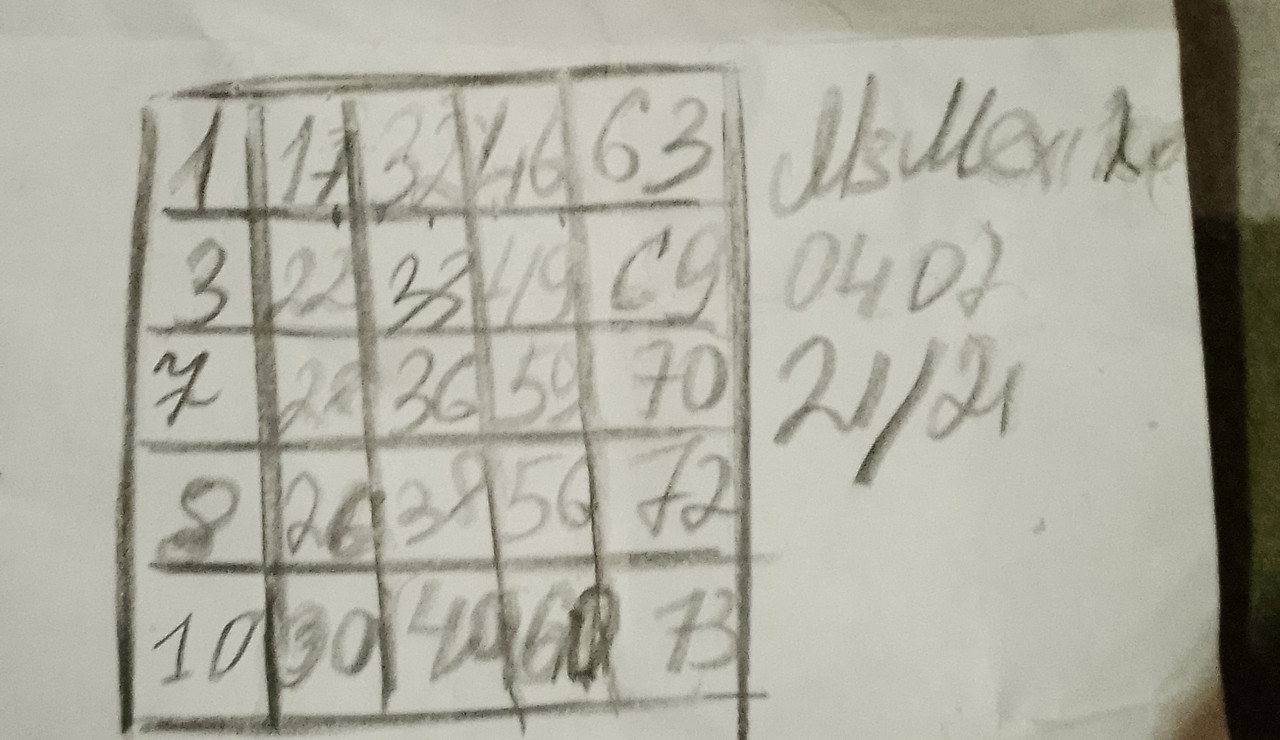 1 17 32 46 63
3 22 33 49 69
7 36 59 70
8 26 38 56 72
10 30 40 60 73
0407
21/21